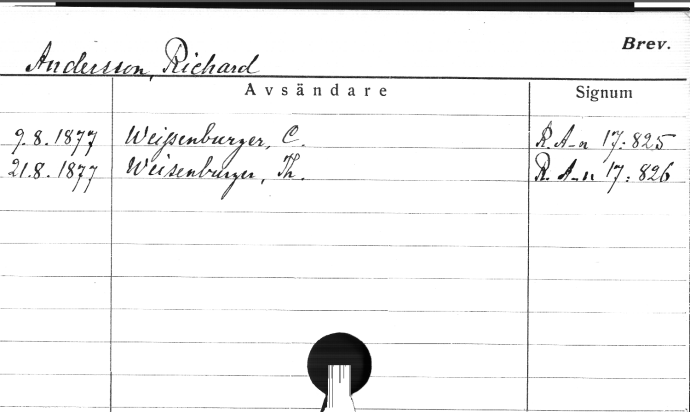 Brev.
Andersson, Richard
Avsändare Signum
9.8.1877 Weißenburger, C. R. A-n 17:825
21.8.1877 Weisenburger, Th. R. A-n 17:826